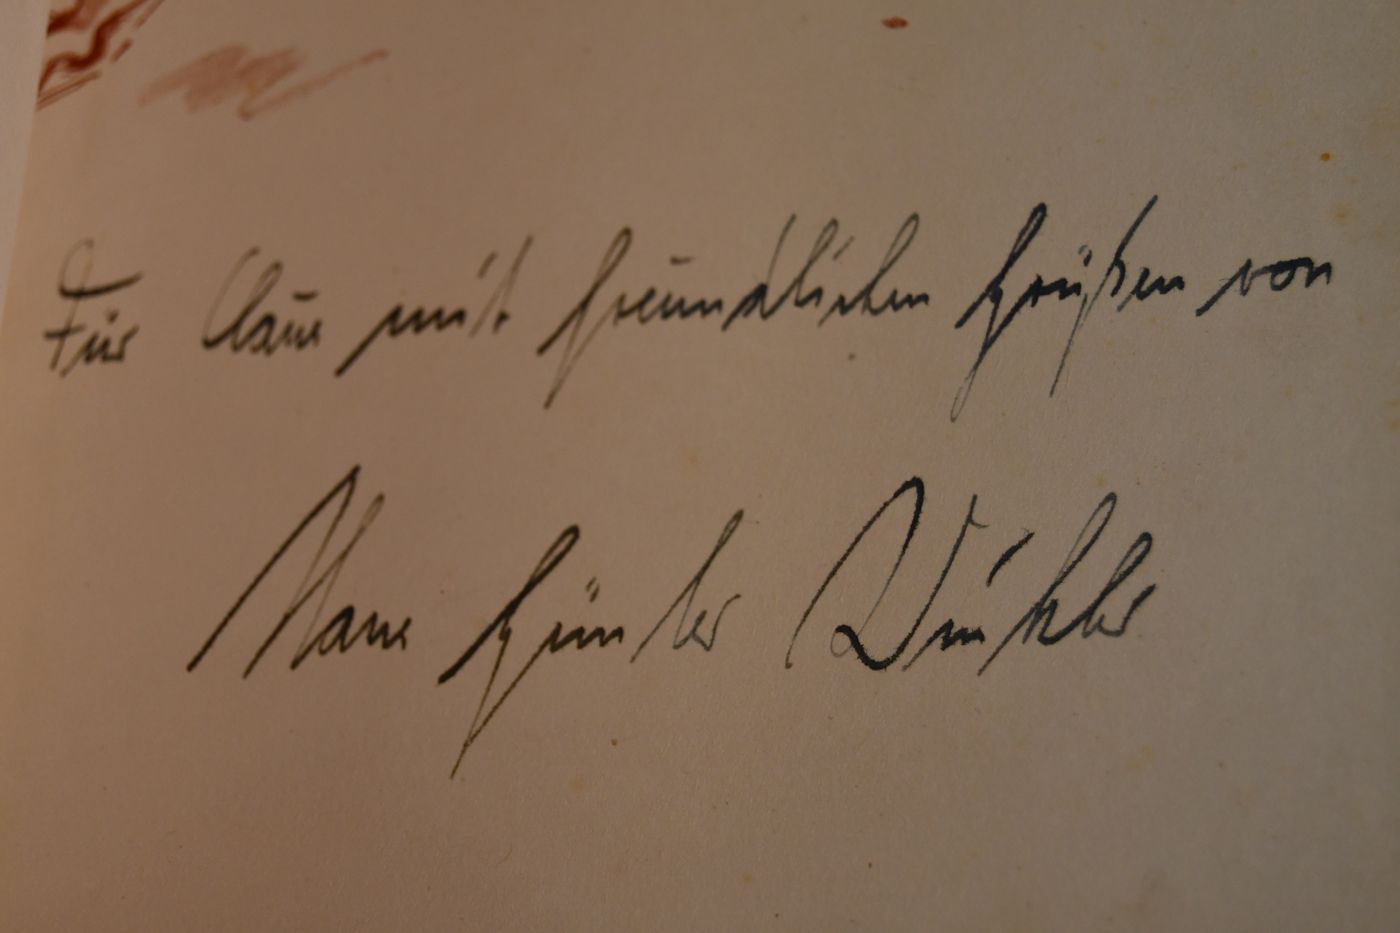 Für Claus mit freundlichen Grüßen von
Hans Günter Winkler